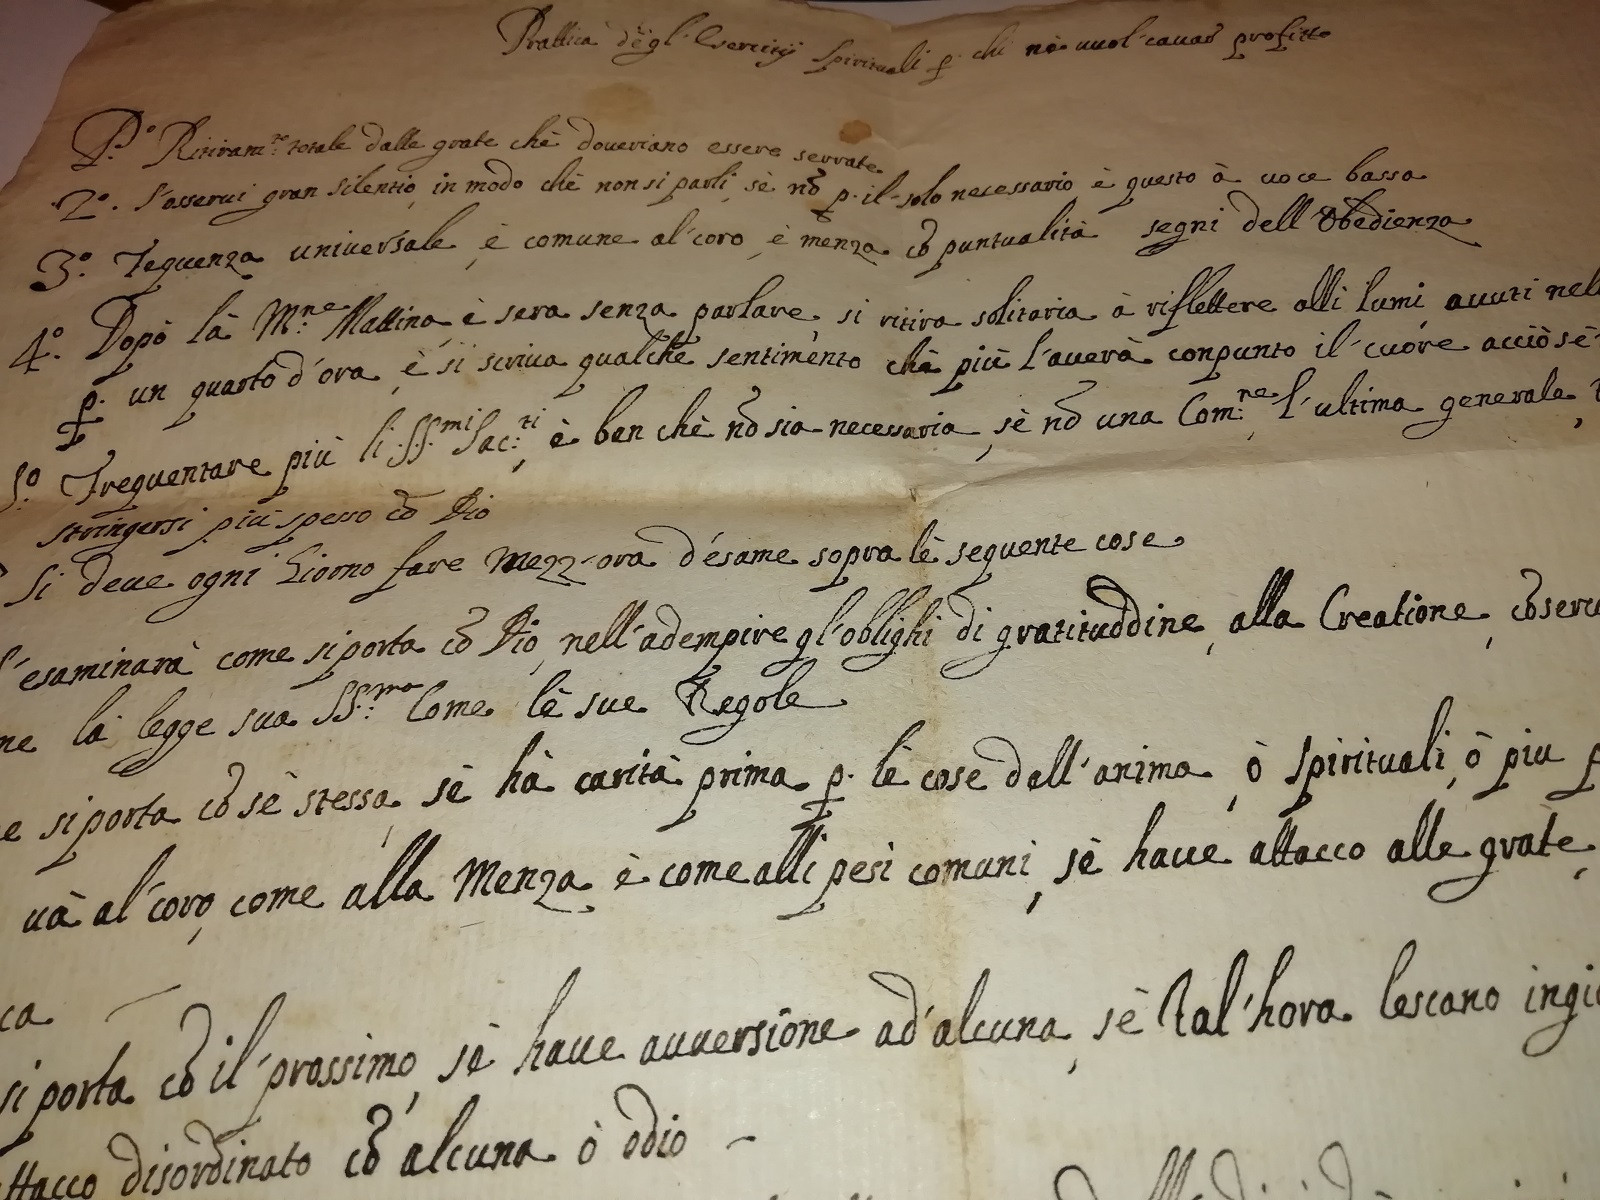 Prattica degl'Esercitij Spirituali p. chi nō vuol'cavar profitto
P.º Ritiram.to totale dalle grate chè doveriano essere serrate
2º. s'osservi gran silentio, in modo chè non si parli, sè nō p. il-solo necessario è questo à voce bassa
3º. Frequenza universale, è comune al'coro, è menza cō puntualità segni dell'Obedienza
4º. Dopò là M.ne Mattina, è sera senza parlare, si ritira solitaria à riflettere alli lumi avuti nell
p. un quarto d'ora, è si scriva qualche sentimento chè più l'averà conpunto il'cuóre acciò sè
5.º Frequentare più li SS.mi Sac.ti, è ben chè nō sia necessaria, sè nō una Com.ne l'ultima generale,
stringersi più spesso cō Dio
Si deve ogni Giorno fare Mezz'ora d'ésame sopra lè seguente cose
s'esaminarà come si porta cō Dio, nell'adempire gl'oblighi di gratituddine, alla Creatione, cōserv
ne la legge sua SS.ma Come lè sue Regole
e si porta cō sè stessa, sè hà carità prima p. lè cose dell'anima, ò spirituali, ò piu p
và al'coro, come alla Menza, è come alli pesi comuni, sè have attacco alle grate,
ca
si porta cō il'prossimo, sè have avversione ad'alcuna, sè tal'hora l'escano ingiu
ttacco disordinato cō alcuna ò odio